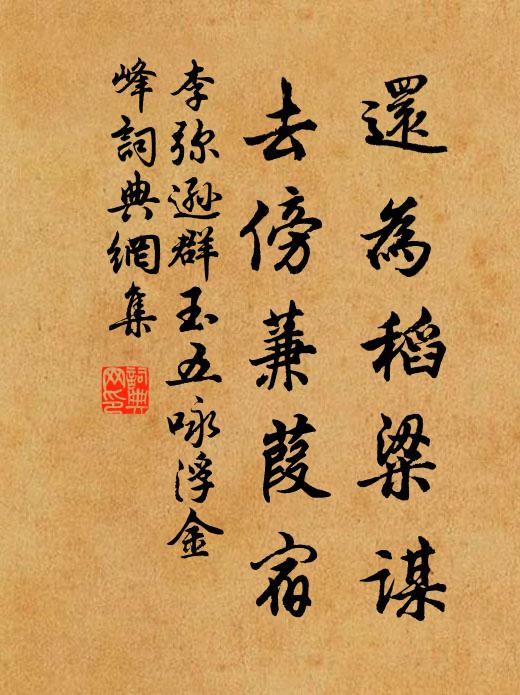 還為稻粱謀
去傍蒹葭宿
李弥遜群玉五咏浮金
峰詞典網集
詞典網印